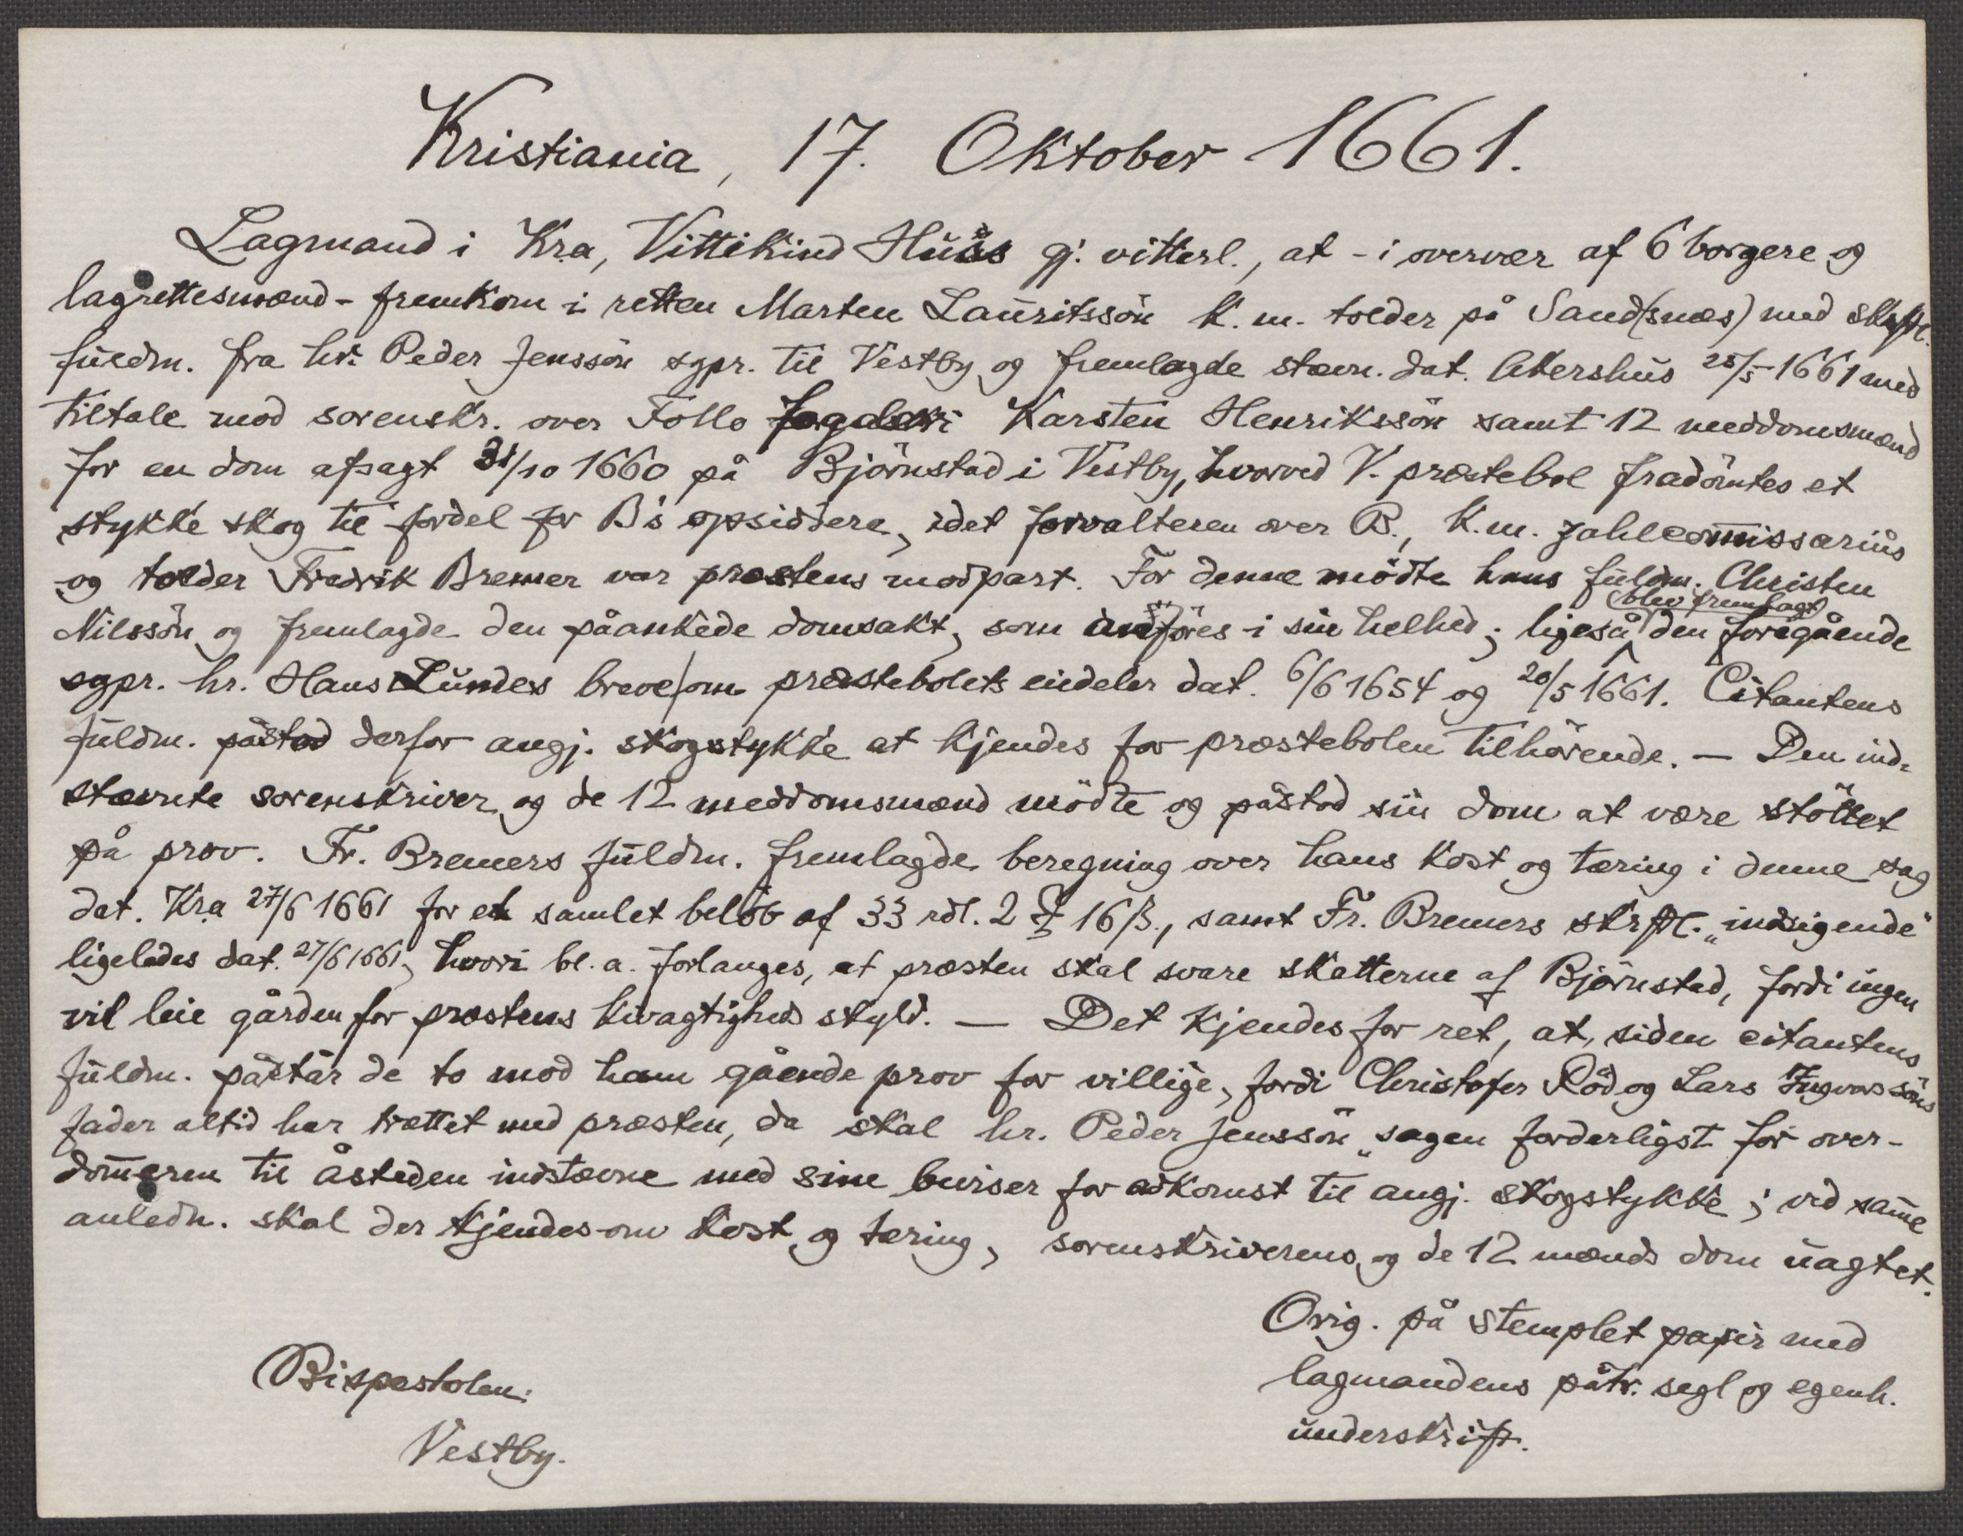 Kristiania, 17. Oktober 1661.
Lagmand i Kra, Vittikind Huss gj. vitterl., at - i overvær af 6 borgere og
lagrettesmænd - fremkom i retten Marten Lauritssön k. m. tolder på Sand(snæs) med skrftl.
fuldm. fra hr. Peder Jenssön sgpr. til Vestby og fremlagde stævn. dat. Akershus 25/5 1661 med
tiltale mod sorenskr. over Follo fogderi Karsten Henrikssön samt 12 meddomsmænd
for en dom afsagt 31/10 1660 på Björnstad i Vestby, hvorved V. prestebol fradömtes et
stykke skog til fordel for B's opsiddere, idet forvalteren over B., k. m. zahlcom̅issarius
og tolder Fredrik Bremer var præstens modpart. For denne mödte hans fuldm. Christen
Nilssön og fremlagde den påankede domsakt, som anföres i sin helhed; ligeså (blev fremlagt) den foregående
sgpr. hr. Hans Lundes breve om præstebolets eiedeler dat. 6/6 1654 og 20/5 1661. Citantens
fuldm. påstod derfor angj. skogstykke at kjendes for præstebolen tilhörende. — Den ind-
stævnte sorenskriver og de 12 meddomsmænd mödte og påstod sin dom at være stöttet
på prov. Fr. Bremers fuldm. fremlagde beregning over hans kost og tæring i denne sag
dat. Kra 27/6 1661 for et samlet belöb af 33 rdl. 2 ₰ 16 β., samt Fr. Bremers skrftl. „indsigende"
ligeledes dat. 27/6 1661, hvori bl. a. forlanges, at præsten skal svare skatterne af Björnstad, fordi ingen
vil leie gården for præstens kivagtigheds skyld. — Det kjendes for ret, at, siden citantens
fuldm. påstår de to mod ham gående prov for villige, fordi Christofer Röd og Lars Ingvarssöns
fader altid har trættet med præsten, da skal hr. Peder Jenssön „sagen forderligst for over-
dom̅eren til åsteden indstævne med sine beviser for adkomst til angj. skogstykke; ved sam̅e
anledn. skal der kjendes om kost og tæring, sorenskriverens og de 12 mænds dom uagtet.
Orig. på stemplet papir med
lagmandens påtr. segl og egenh.
underskrift.
Bispestolen:
Vestby.